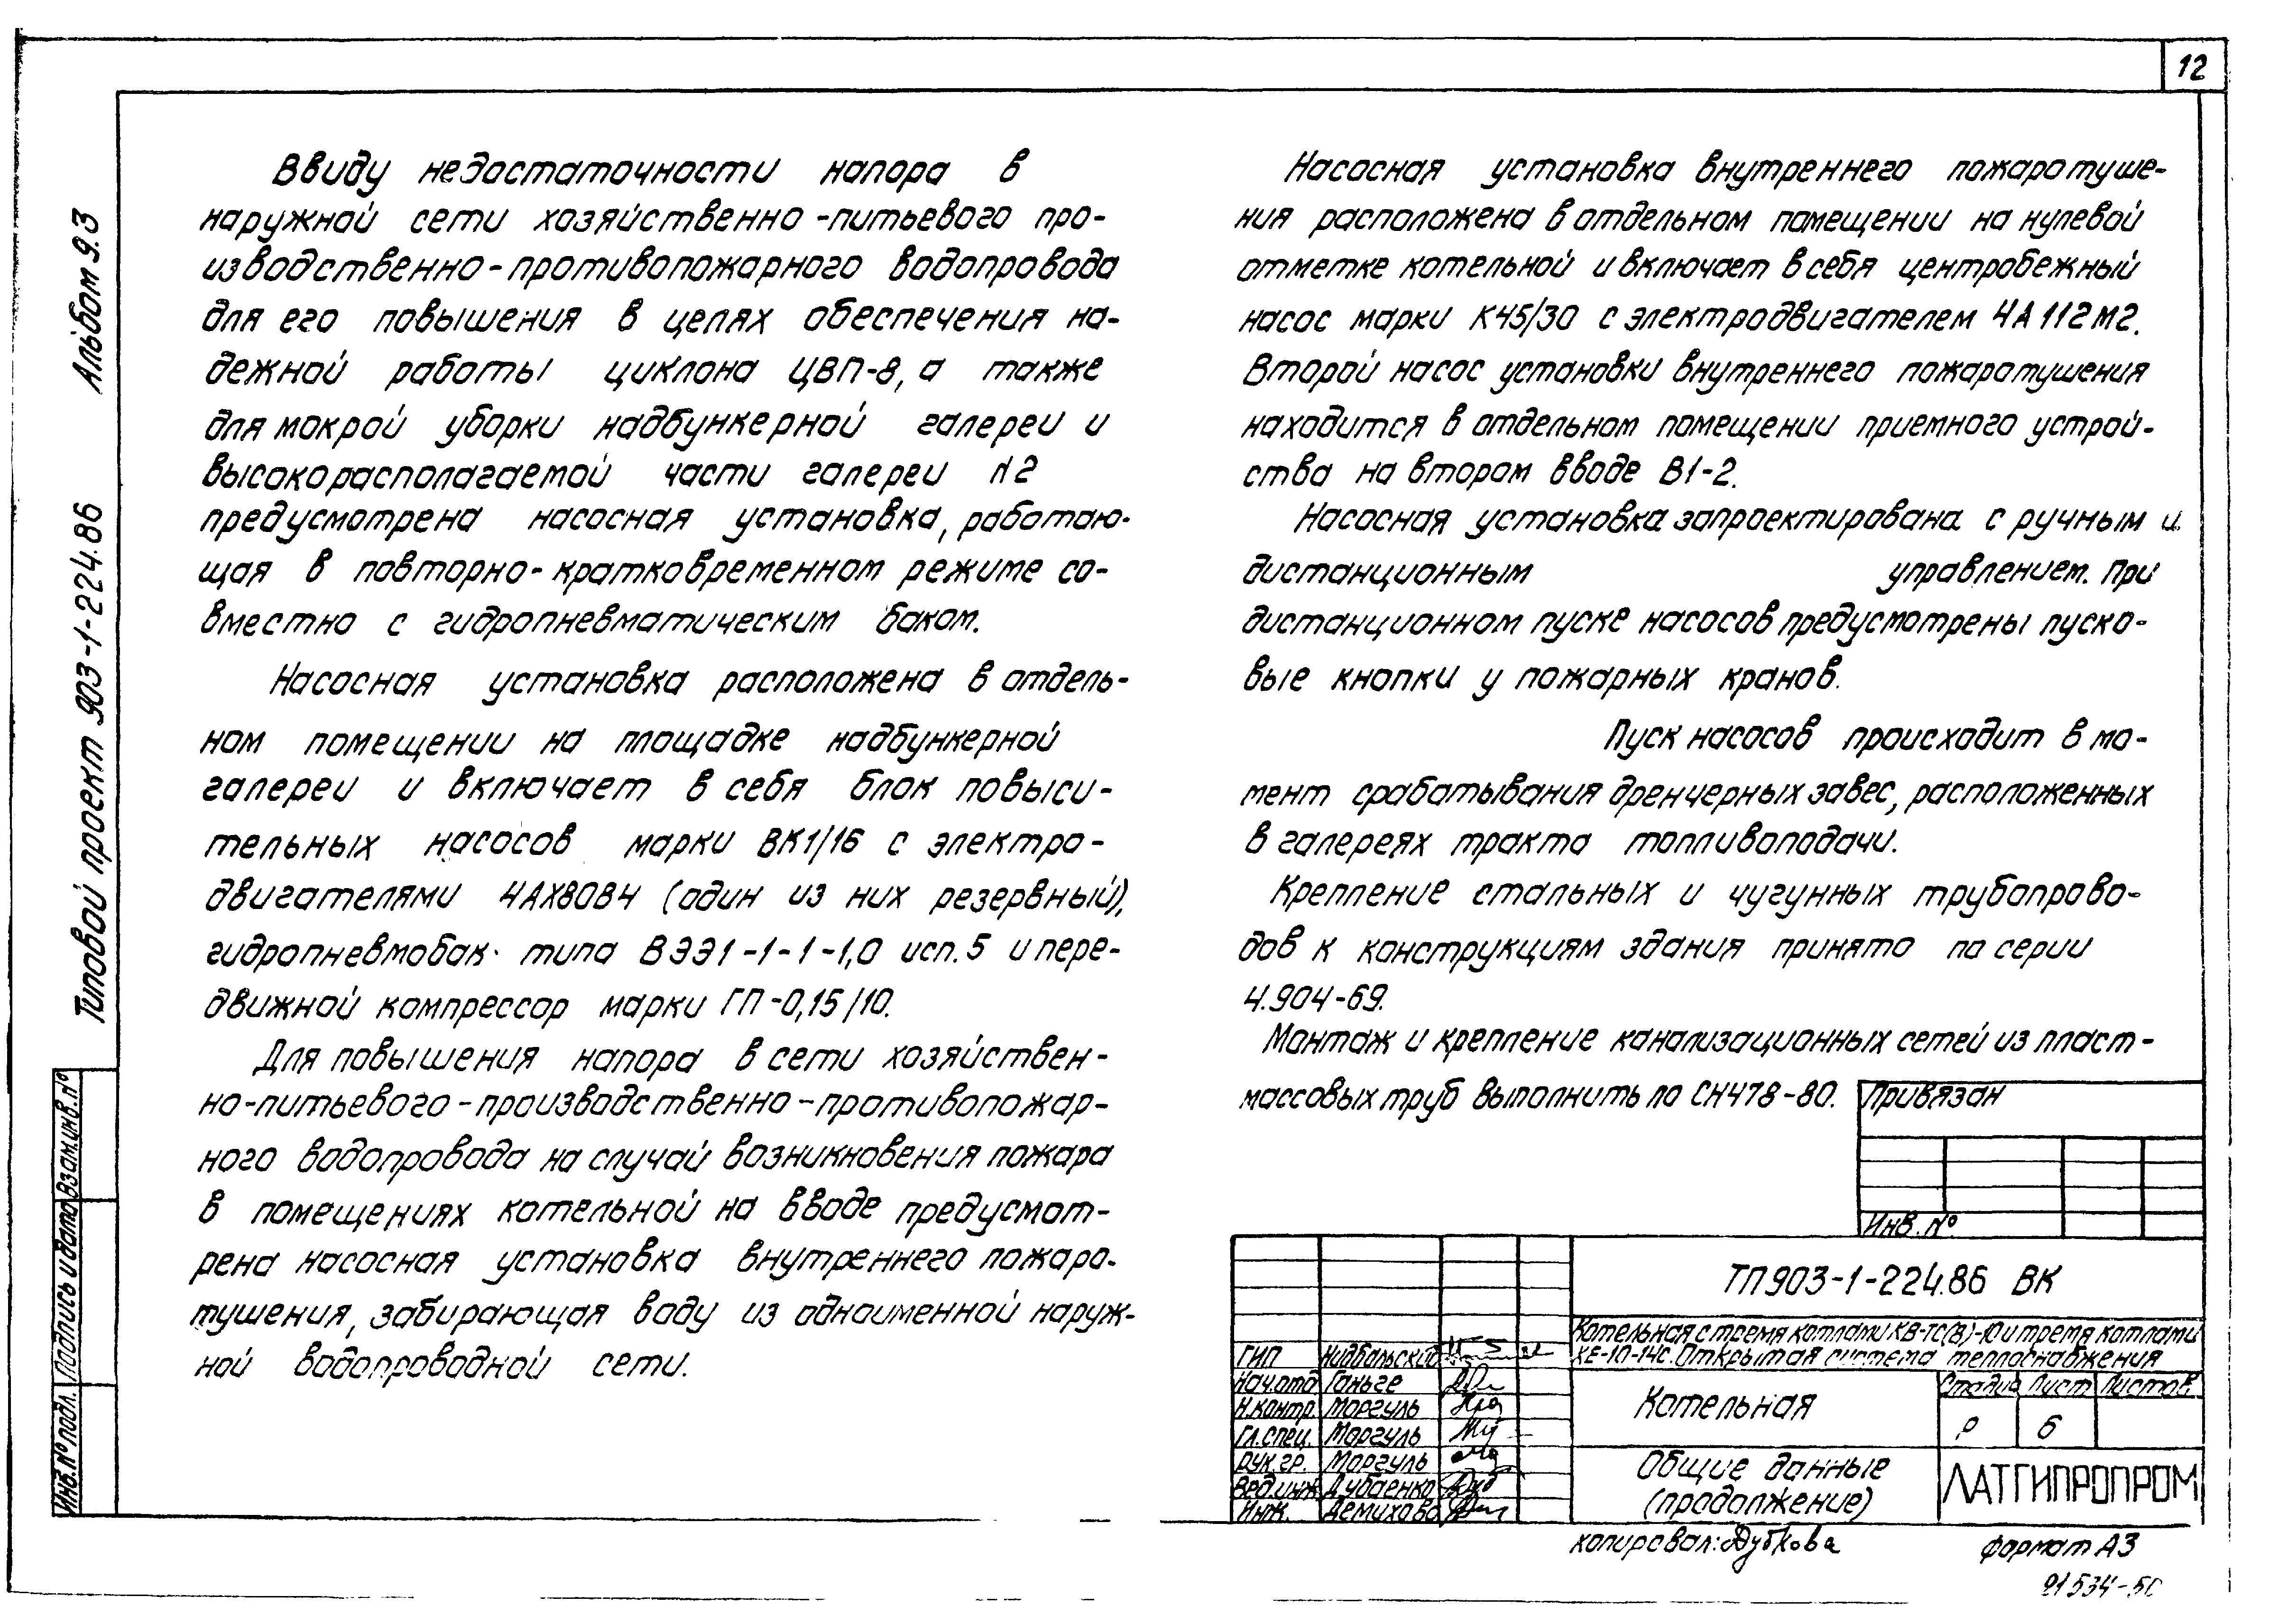 12
Альбом 9.3
Типовой проект 903-1-224.86
Ввиду недостаточности напора в
наружной сети хозяйственно-питьевого про-
изводственно-противопожарного водопровода
для его повышения в целях обеспечения на-
дежной работы циклона ЦВП-8, а также
для мокрой уборки надбункерной галереи и
высокорасполагаемой части галереи N2
предусмотрена насосная установка, работаю-
щая в повторно-кратковременном режиме со-
вместно с гидропневматическим баком.
Насосная установка расположена в отдель-
ном помещении на площадке надбункерной
галереи и включает в себя блок повыси-
тельных насосов марки ВК1/16 с электро-
двигателями 4АХ80В4 (один из них резервный),
гидропневмобак типа ВЭЭ1-1-1-1,0 исп.5 и пере-
движной компрессор марки ГП-0,15/10.
Для повышения напора в сети хозяйствен-
но-питьевого-производственно-противопожар-
ного водопровода на случай возникновения пожара
в помещениях котельной на вводе предусмот-
рена насосная установка внутреннего пожаро-
тушения, забирающая воду из одноименной наруж-
ной водопроводной сети.
Насосная установка внутреннего пожаротуше-
ния расположена в отдельном помещении на нулевой
отметке котельной и включает в себя центробежный
насос марки К45/30 с электродвигателем 4А112М2.
Второй насос установки внутреннего пожаротушения
находится в отдельном помещении приемного устрой-
ства на втором вводе В1-2.
Насосная установка запроектирована с ручным и
дистанционным управлением. При
дистанционном пуске насосов предусмотрены пуско-
вые кнопки у пожарных кранов.
Пуск насосов происходит в мо-
мент срабатывания дренчерных завес, расположенных
в галереях тракта топливоподачи.
Крепление стальных и чугунных трубопрово-
дов к конструкциям здания принято по серии
4.904-69.
Монтаж и крепление канализационных сетей из пласт-
массовых труб выполнить по СН478-80.
Привязан
Инв. №
ТП903-1-224.86 ВК
Котельная с тремя котлами КВ-ТС(В)-10 и тремя котлами
КЕ-10-14С. Открытая система теплоснабжения
ГИП Нидбальский
Нач.отд Ганьге
Н.контр. Моргуль
Гл.спец. Моргуль
Рук.гр. Моргуль
Вед.инж Дубаенко
Инж. Демихова
Котельная
Стадия Лист Листов
Р 6
Общие данные
(продолжение)
ЛАТГИПРОПРОМ
Взам.инв.№
Подпись и дата
Инв.№ подл.
копировал: Дубкова
Формат А3
21534-50